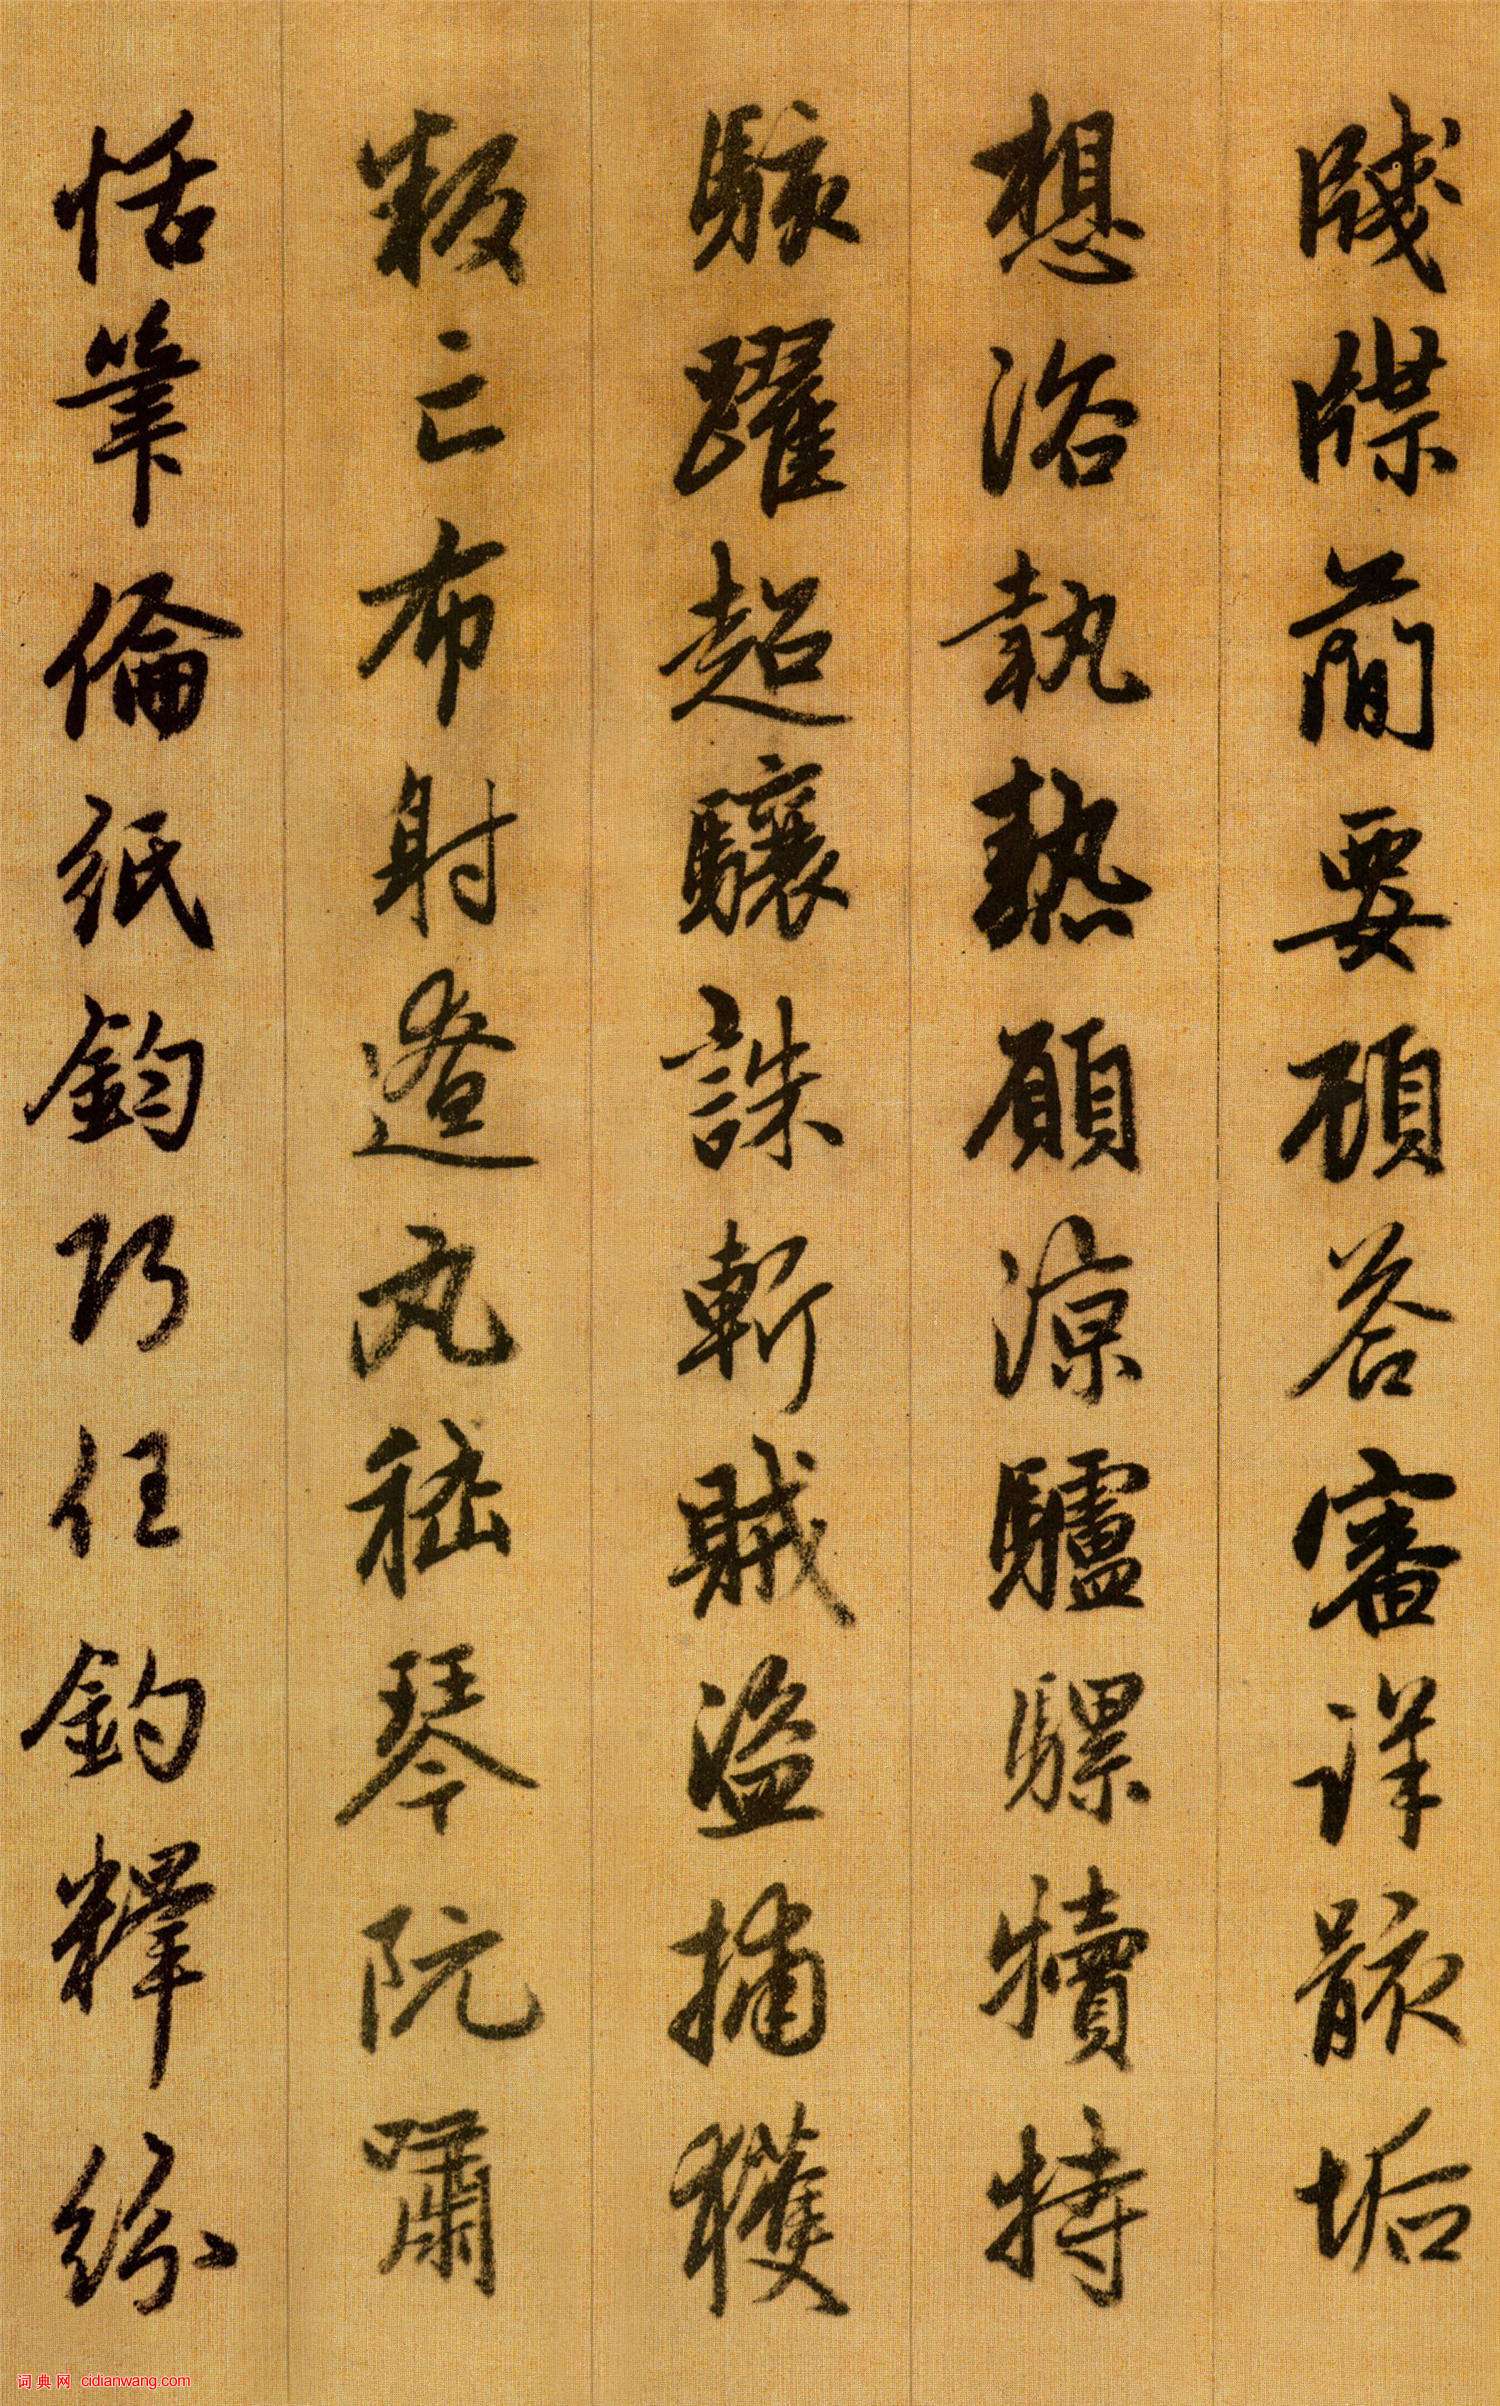 牋牒蕳要頋荅審詳骸垢
想浴執熱願涼驢騾犢特
駭躍超驤誅斬賊盜捕穫
叛亡布射遼丸嵇琴阮嘯
恬筆倫紙鈞巧任釣釋紛
词典网 cidianwang.com